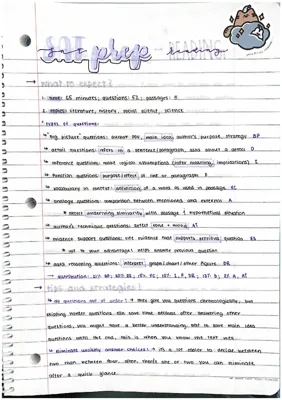 SAT prep - READING
sat reading
→ what to expect?
time: 65 minutes; questions: 52; passages: 5
topics: literature, history, social science, science
types of questions:
big picture questions: author POV, main idea, author's purpose, strategy BP
detail questions: refers to a sentence/paragraph, asks about a detail D
inference questions: make logical assumptions (infer meaning, implications) I
function questions: purpose/effect of line or paragraph F
vocabulary in context: definition of a word as used in passage VC
analogy questions: comparison between mentioned and external A
* select underlying similarity with passage & hypothetical situation
author's technique questions: detect tone + mood, AT
evidence support questions: cite evidence that supports previous question ES
* use to your advantage: with answer previous question
data reasoning questions: interpret graph/chart/other figure DR
→ distribution:
→ tips and strategies!
do questions out of order! they give you questions chronologically, but
existing harder questions can save time. address after answering other
questions, you might have a better understanding. best to save main idea
questions until the end, this is when you know the text well
eliminate unlikely answer choices: it's a lot easier to decide between
two than between four. often, there's one or two you can eliminate
after a quick glance.